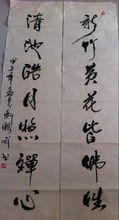 新竹黄花皆佛性
清池皓月照禪心